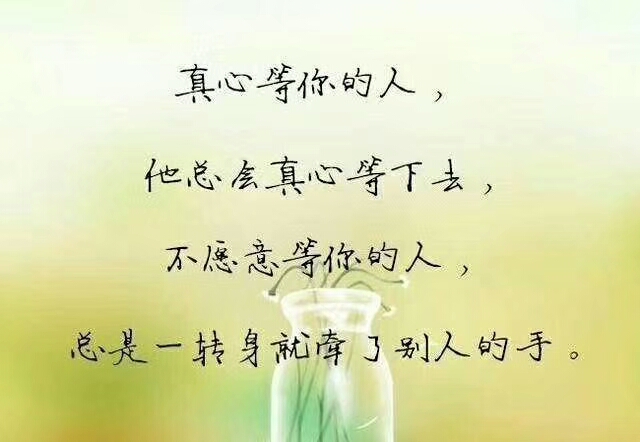 真心等你的人，
他总会真心等下去，
不愿意等你的人，
总是一转身就牵了别人的手。